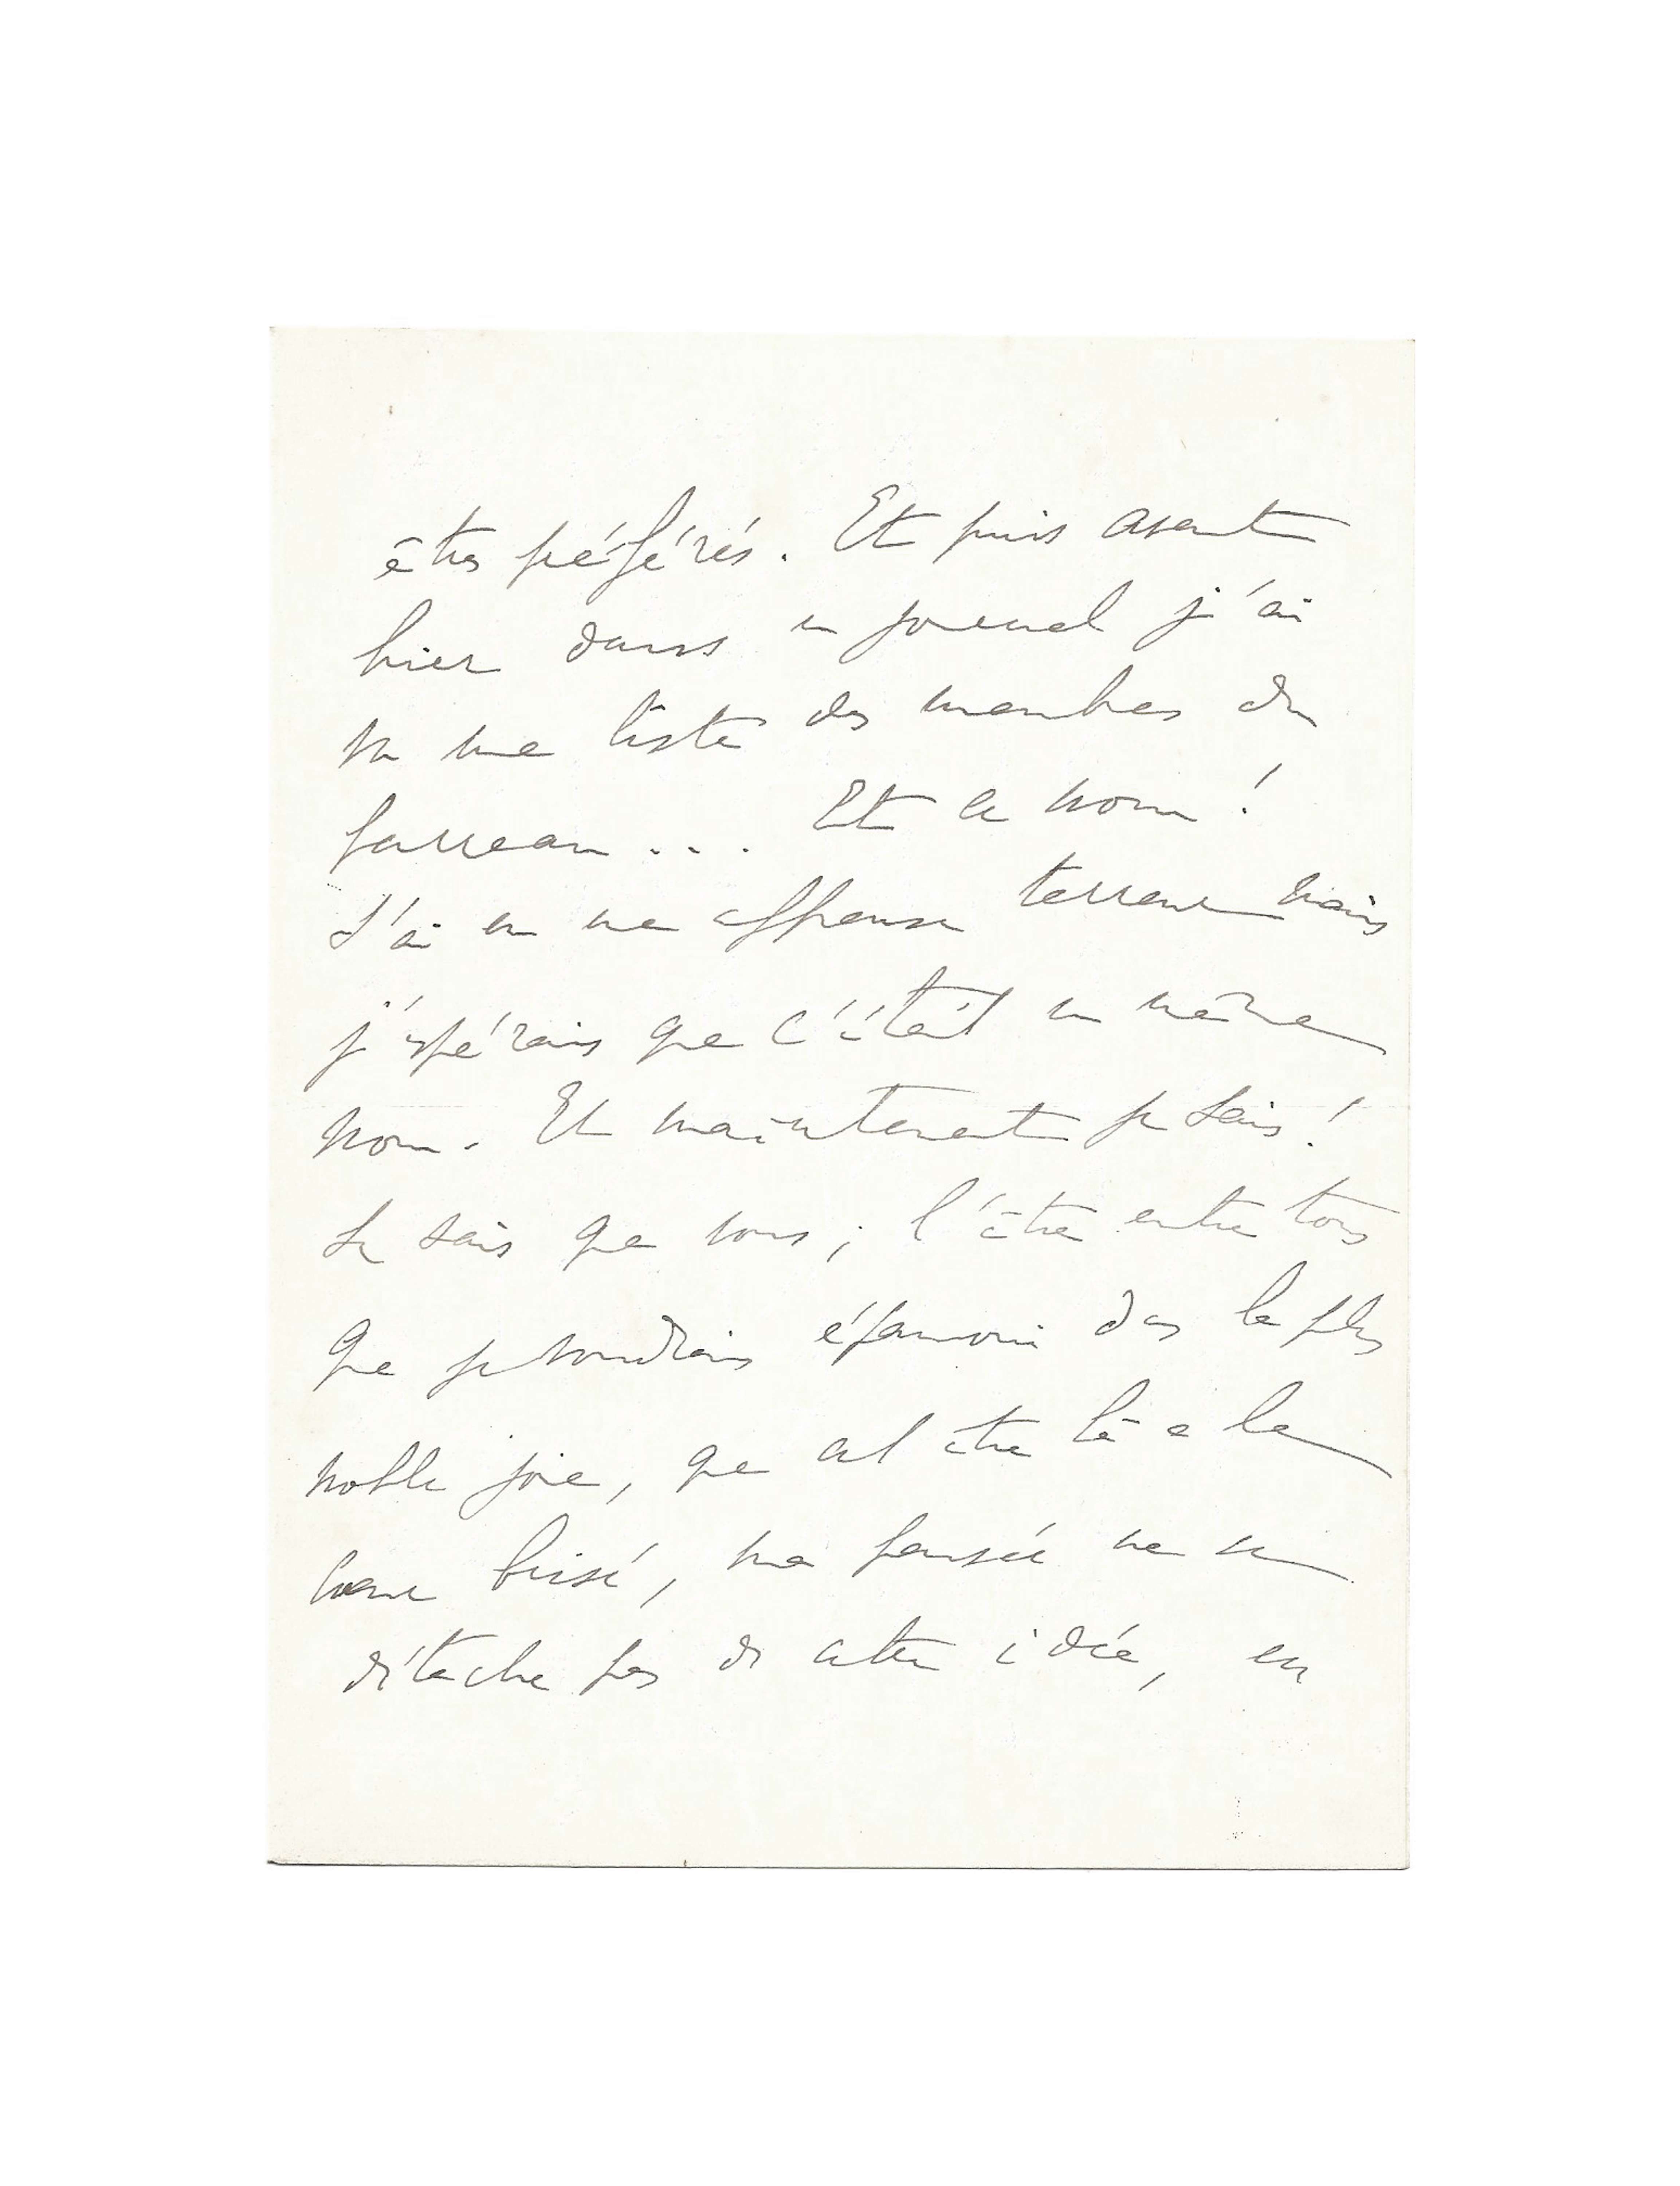 êtres préférés. Et puis avant
hier dans un journal j'ai
vu une liste des membres du
bureau... Et ce nom !
J'ai eu une affreuse terreur mais
j'espérais que c'était un même
nom. Et maintenant je sais !
Je sais que vous ; l'être entre tous
que je voudrais épanoui dans la plus
noble joie, que cet être là a le
cœur brisé, ma pensée ne se
détache pas de cette idée, en